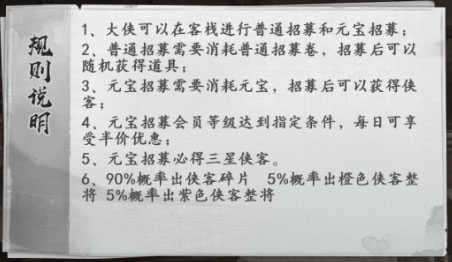 规则说明
1、大侠可以在客栈进行普通招募和元宝招募；
2、普通招募需要消耗普通招募卷，招募后可以
随机获得道具；
3、元宝招募需要消耗元宝，招募后可以获得侠
客；
4、元宝招募会员等级达到指定条件，每日可享
受半价优惠；
5、元宝招募必得三星侠客。
6、90%概率出侠客碎片  5%概率出橙色侠客整
将 5%概率出紫色侠客整将